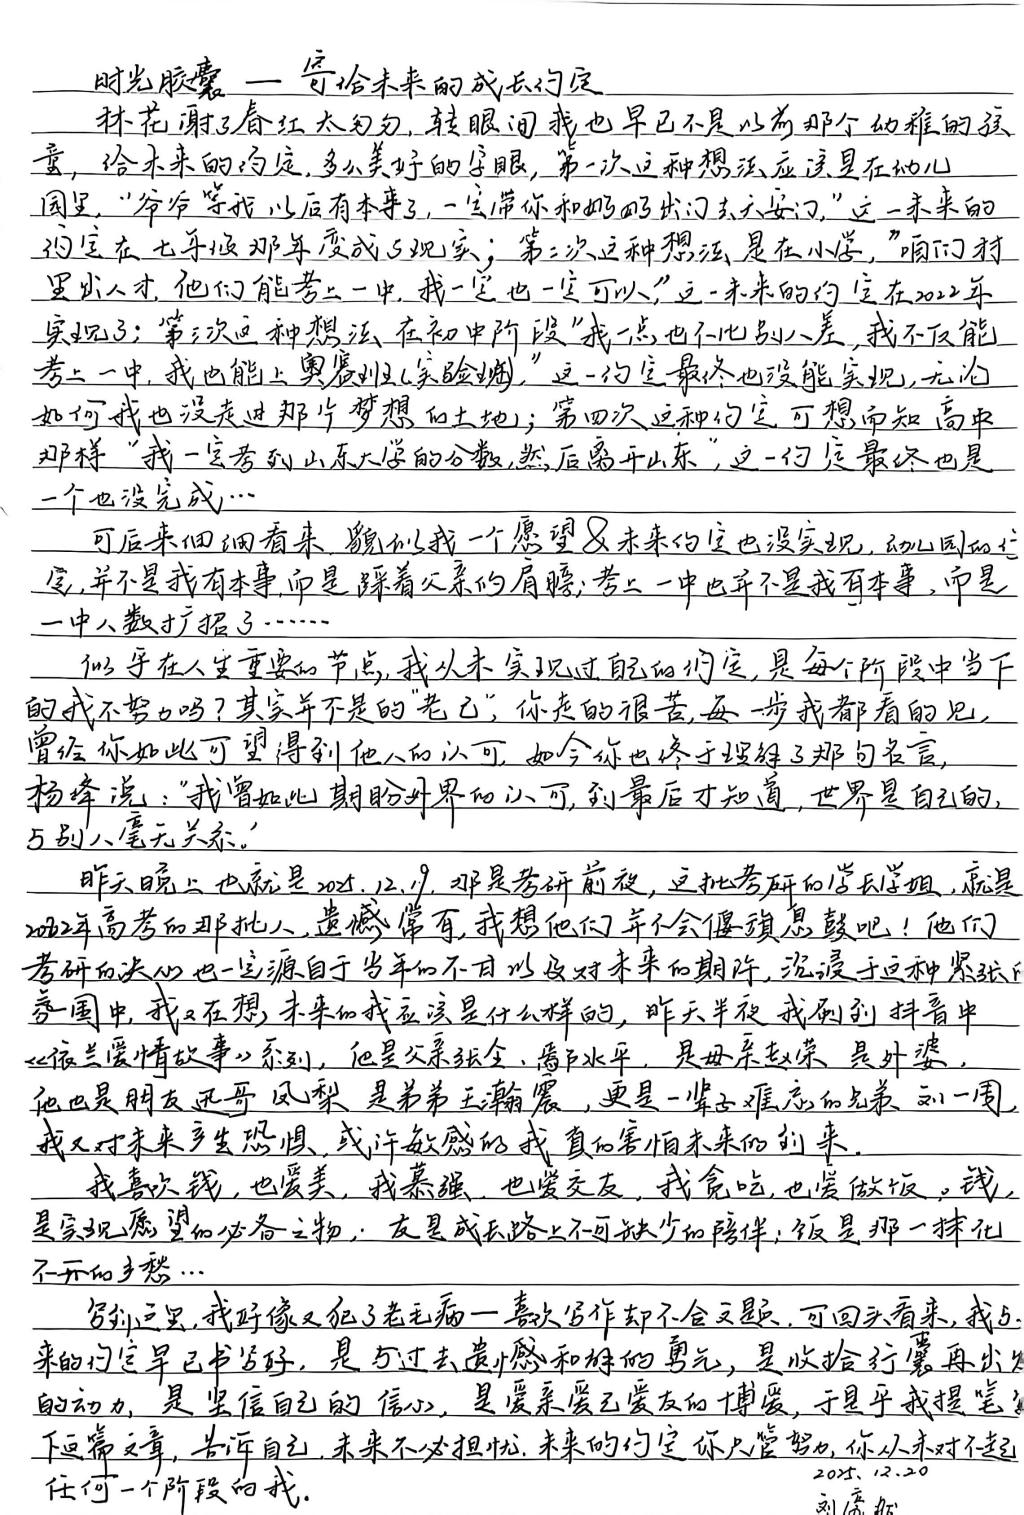 时光胶囊 — 寄给未来的成长约定
林花谢了春红太匆匆,转眼间我也早已不是以前那个幼稚的孩
童,给未来的约定,多么美好的字眼,第一次这种想法应该是在幼儿
园里,“爷爷等我以后有本事了,一定带你和奶奶出门去天安门,”这一未来的
约定在七年级那年变成了现实;第二次这种想法是在小学,”咱们村
里出人才,他们能考上一中,我一定也一定可以,”这一未来的约定在2022年
实现了;第三次这种想法在初中阶段“我一点也不比别人差,我不仅能
考上一中,我也能上奥赛班(实验班),”这一约定最终也没能实现,无论
如何我也没走进那片梦想的土地;第四次这种约定可想而知高中
那样“我一定考到山东大学的分数,然后离开山东”,这一约定最终也是
一个也没完成…
可后来细细看来,貌似我一个愿望&未来约定也没实现,幼儿园的约
定,并不是我有本事,而是踩着父亲的肩膀;考上一中也并不是我有本事,而是
一中人数扩招了……
似乎在人生重要的节点,我从未实现过自己的约定,是每个阶段中当下
的我不努力吗?其实并不是的“老己”,你走的很苦,每一步我都看的见,
曾经你如此可望得到他人的认可,如今你也终于理解了那句名言,
杨绛说:“我曾如此期盼外界的认可,到最后才知道,世界是自己的,
与别人毫无关系.’
昨天晚上也就是2025.12.19,那是考研前夜,这批考研的学长学姐,就是
2022年高考的那批人,遗憾常有,我想他们并不会偃旗息鼓吧!他们
考研的决心也一定源自于当年的不甘以及对未来的期许,沉浸于这种紧张的
氛围中,我又在想,未来的我应该是什么样的,昨天半夜我刷到抖音中
《依兰爱情故事》系列,他是父亲张全、鄢水平,是母亲赵荣 是外婆,
他也是朋友迅哥 凤梨 是弟弟王瀚震,更是一辈子难忘的兄弟 刘一周,
我又对未来产生恐惧,或许敏感的我真的害怕未来的到来.
我喜欢钱,也爱美,我慕强,也爱交友,我贪吃,也爱做饭。钱,
是实现愿望的必备之物;友是成长路上不可缺少的陪伴;饭是那一抹化
不开的乡愁…
写到这里,我好像又犯了老毛病—喜欢写作却不合文题,可回头看来,我与
来的约定早已书写好,是与过去遗憾和解的勇气,是收拾行囊再出发
的动力,是坚信自己的信心,是爱亲爱己爱友的博爱,于是乎我提笔写
下这篇文章,告诉自己,未来不必担忧,未来的约定你只管努力,你从未对不起
任何一个阶段的我.
2025.12.20